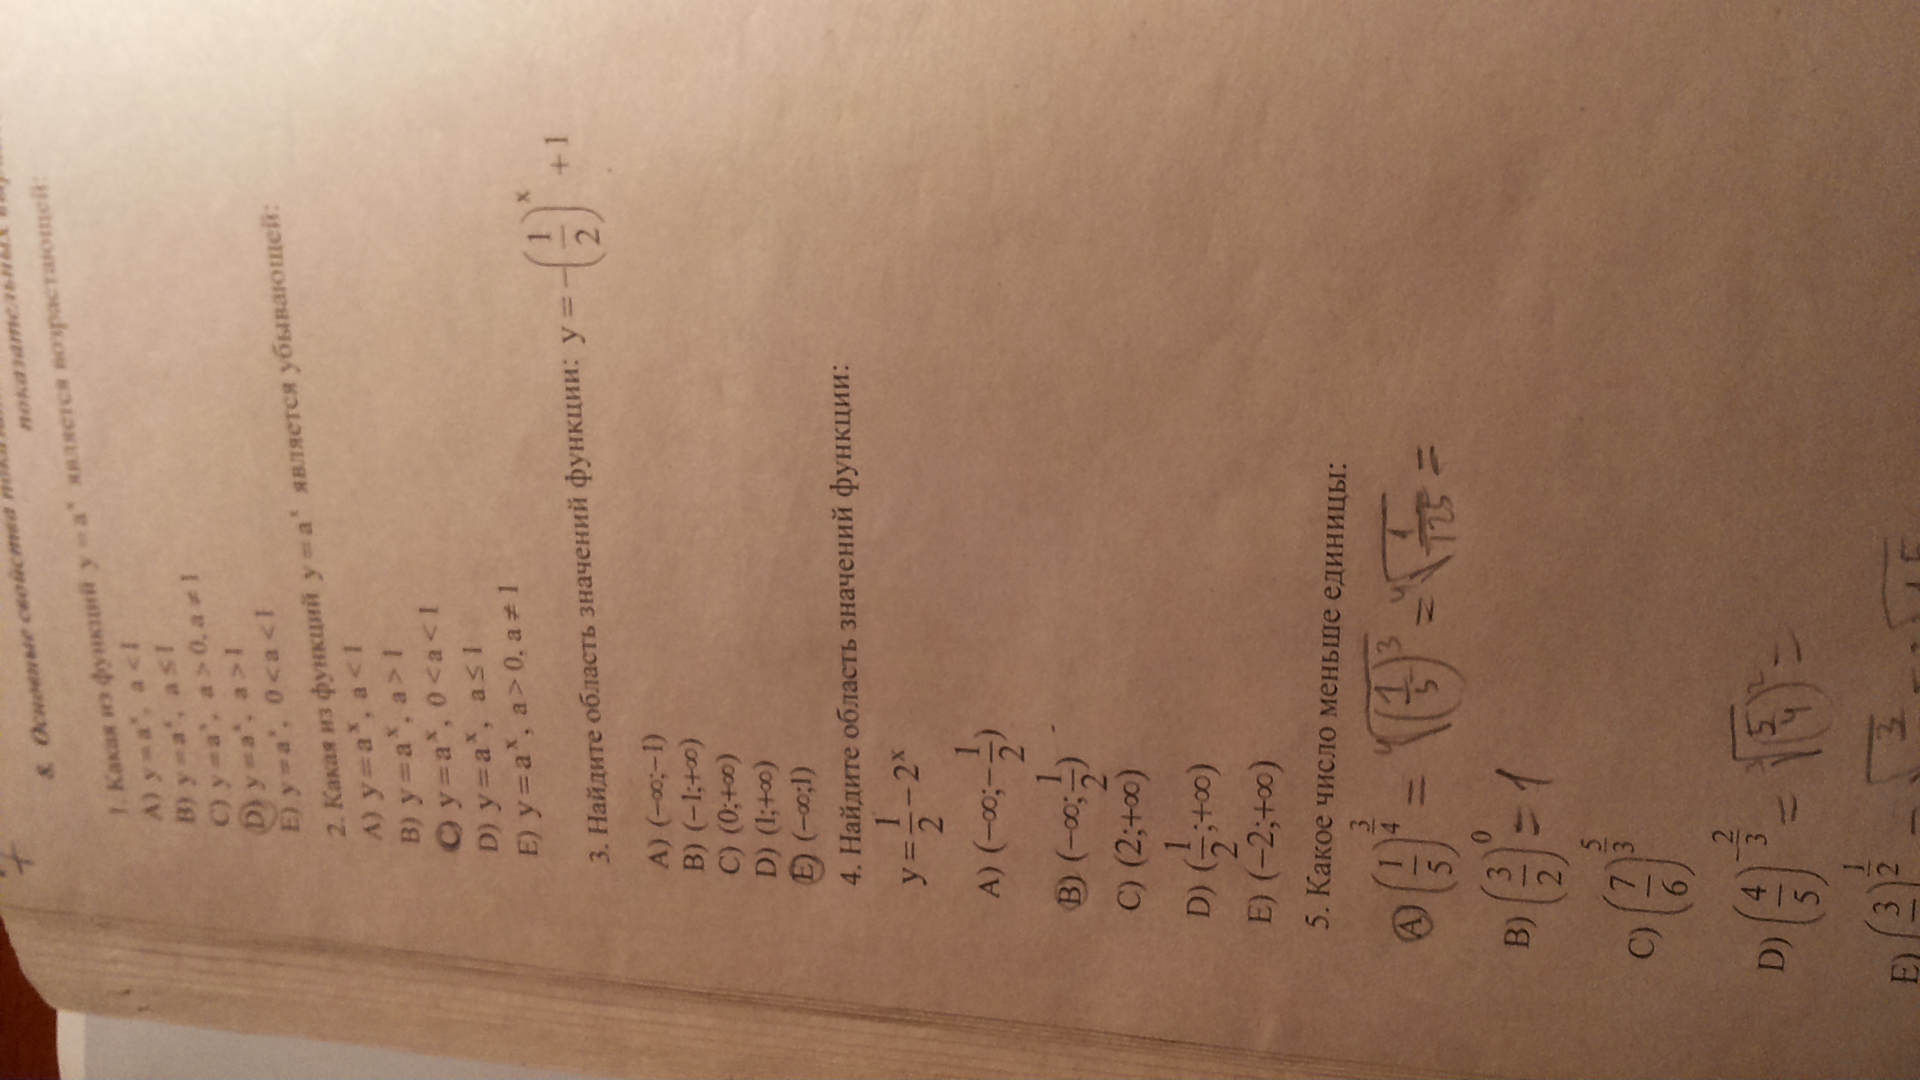 8. Основные свойства
показательных
1. Какая из функций y = aˣ является возрастающей:
A) y = aˣ, a < 1
B) y = aˣ, a ≤ 1
C) y = aˣ, a > 0, a ≠ 1
D) y = aˣ, a > 1
E) y = aˣ, 0 < a < 1
2. Какая из функций y = aˣ является убывающей:
A) y = aˣ, a < 1
B) y = aˣ, a > 1
C) y = aˣ, 0 < a < 1
D) y = aˣ, a ≤ 1
E) y = aˣ, a > 0, a ≠ 1
3. Найдите область значений функции: y = −(1/2)ˣ + 1
A) (−∞;−1)
B) (−1;+∞)
C) (0;+∞)
D) (1;+∞)
E) (−∞;1)
4. Найдите область значений функции:
y = 1/2 − 2ˣ
A) (−∞;−1/2)
B) (−∞;1/2)
C) (2;+∞)
D) (1/2;+∞)
E) (−2;+∞)
5. Какое число меньше единицы:
A) (1/5)^(3/4) = ⁴√(1/5)³ = ⁴√(1/125) =
B) (3/2)⁰ = 1
C) (7/6)^(5/3)
D) (4/5)^(−2/3) = ³√(5/4)² =
E)